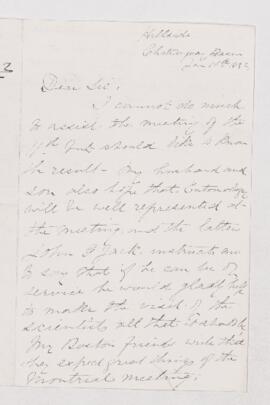 Hillside
Chateauguay Basin
Jan 11th 1882
Dear Sir,
I cannot do much
to assist the meeting of the
but should like to know
the result - My husband and
son also hope that Entomology
will be well represented at
the meeting, and the latter
John G Jack, instructs me
to say that if he can be of
service he would gladly help
to make the visit of the
scientists all that it should be
My Boston friends write that
they expect great things of the
Montreal meeting.
2